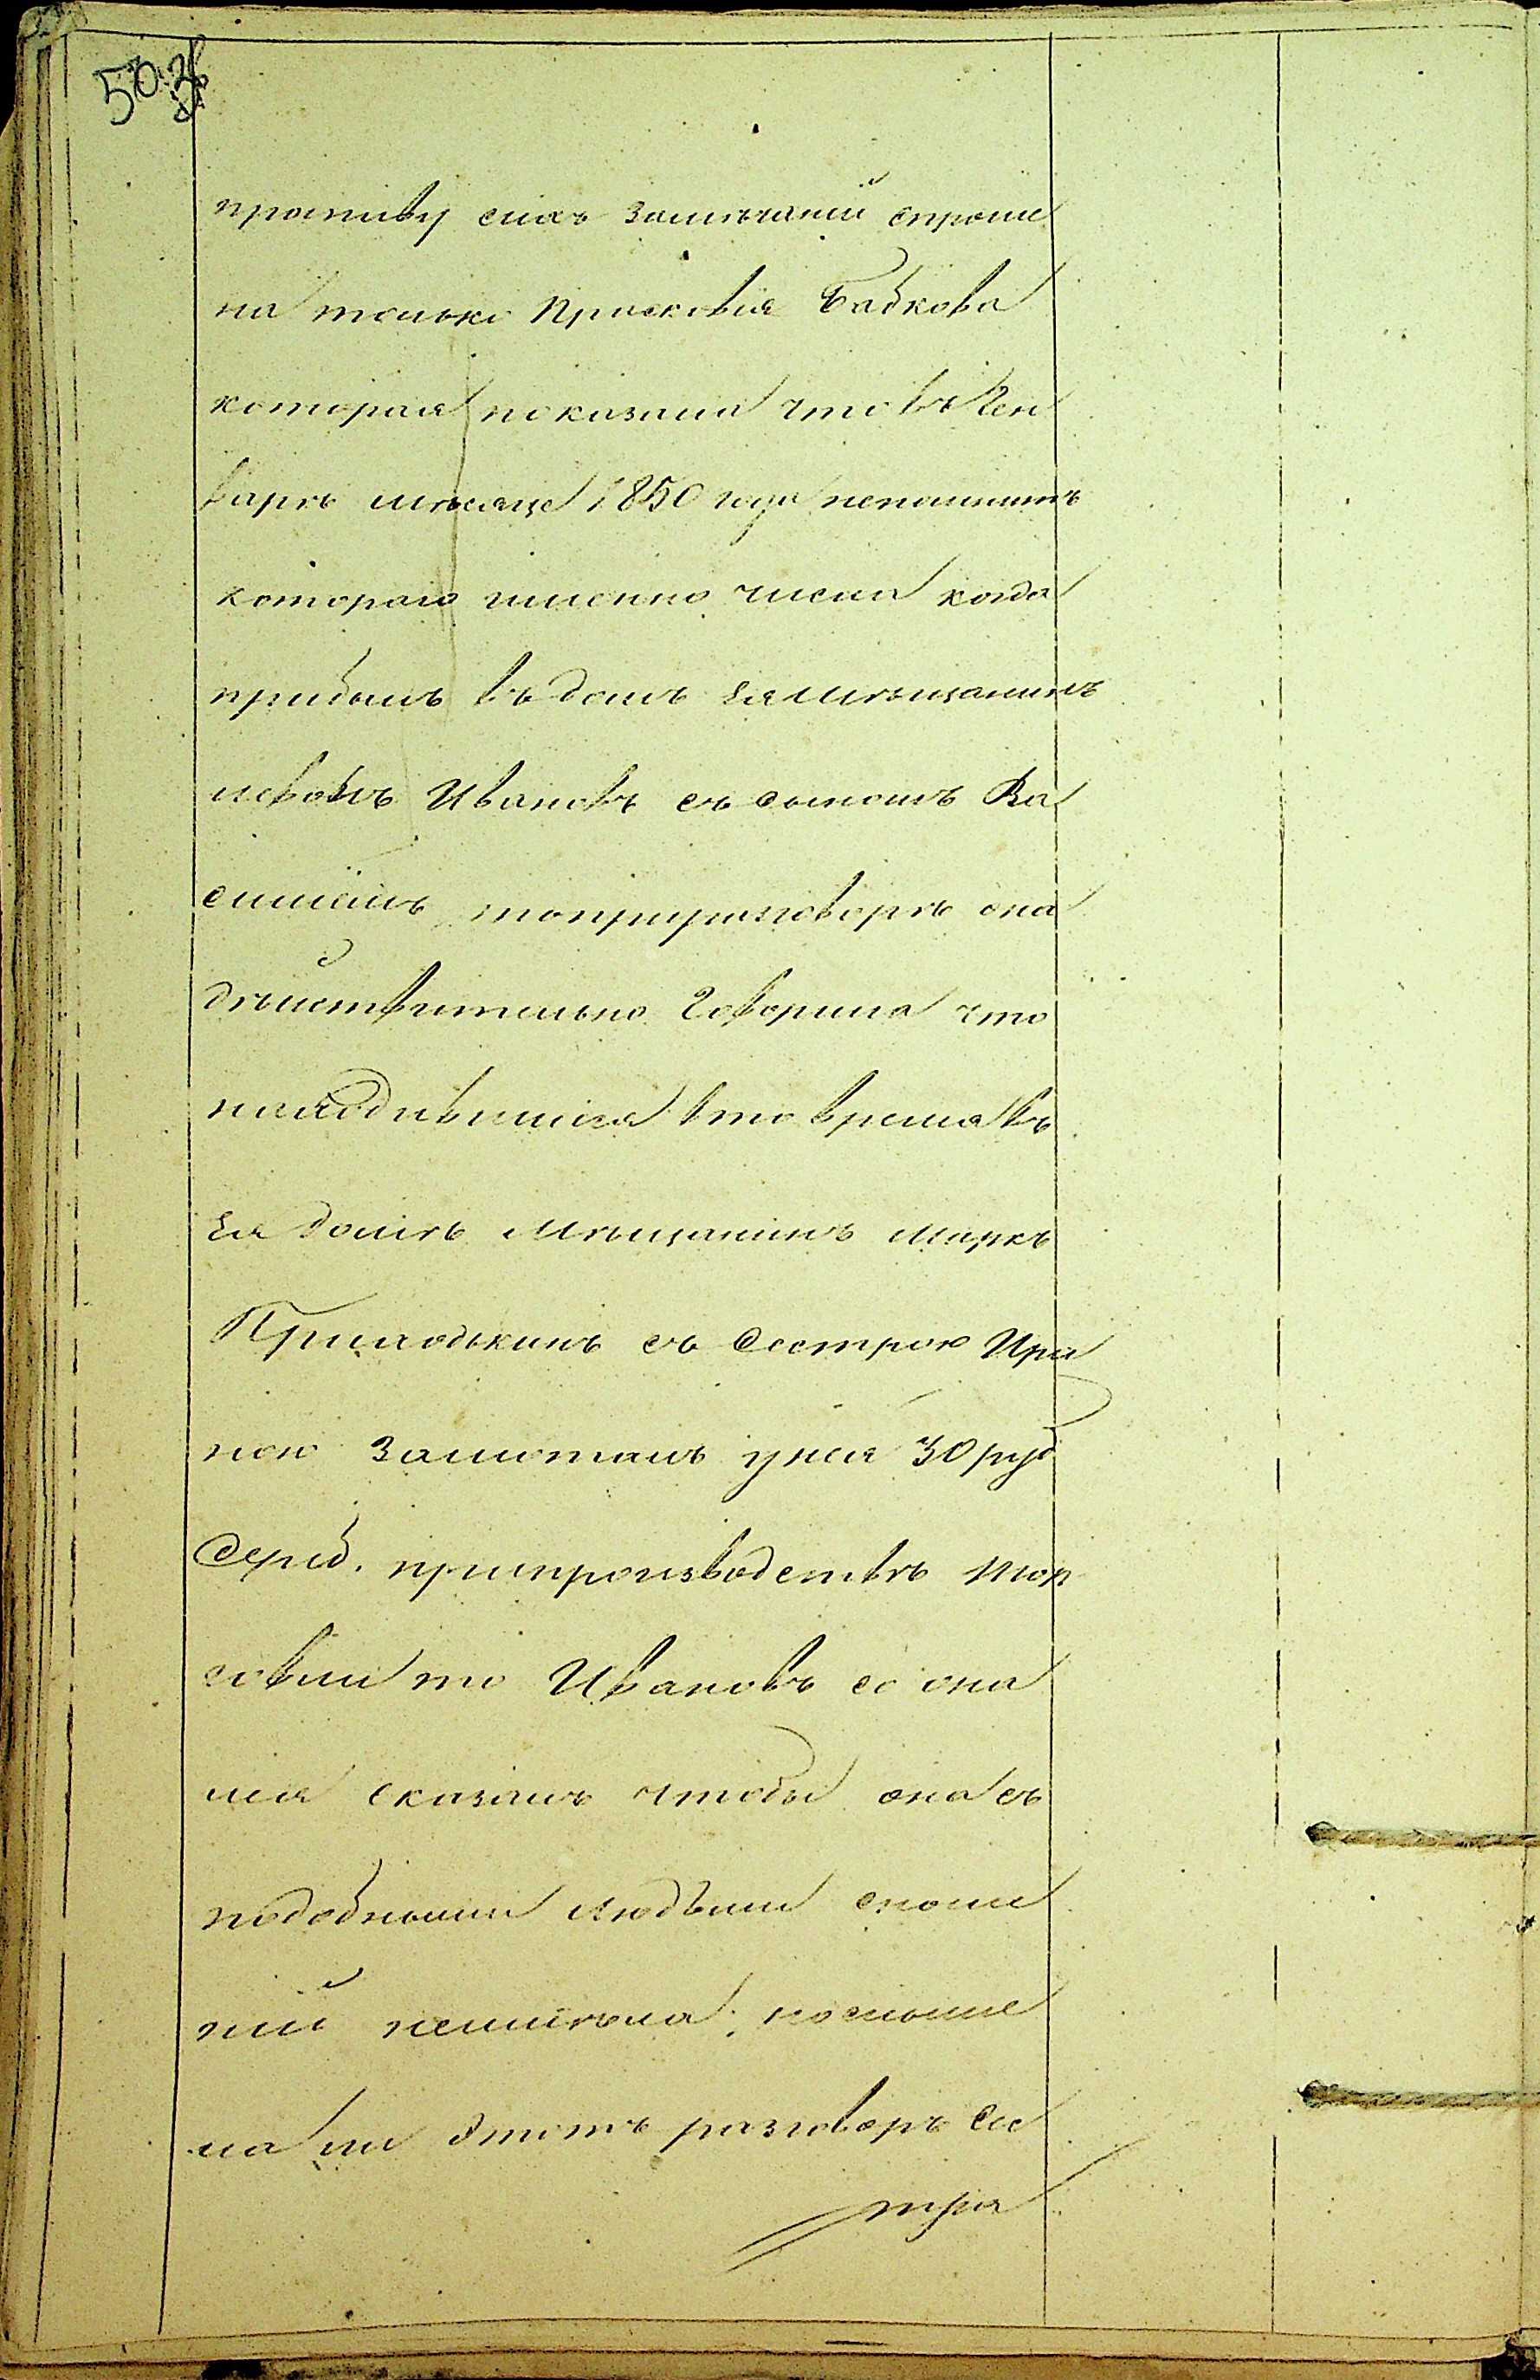 противу сихъ замѣчаній спроше
на только Прасковья Бабкова
которая показала что въ Ген
варѣ мѣсяце 1850 года непомнитъ
котораго именно числа когда
прибылъ въ домъ ея мѣщанинъ
Ивановъ съ сыномъ Ва
сильемъ, то при разговорѣ она
дѣйствительно говорила что
находившійся вто время въ
ея домѣ мѣщанинъ Маркъ
Приходькинъ съ сестрою Ири
ною замоталъ унея 30 руб
Сереб. при производствѣ тор
говли то Ивановъ
сказалъ чтобы она съ
подобными людьми сноше
ній неимѣла,
ла ли этотъ разговоръ Сес
тра